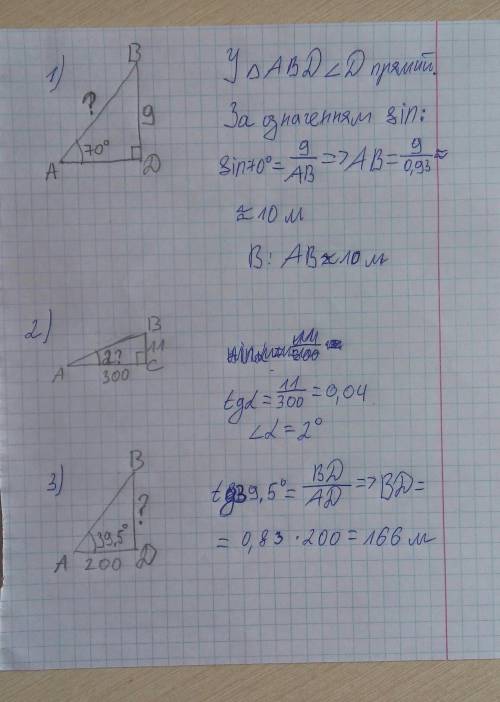 1)
B
?
9
70°
A
D
У △ABD ∠D прямий.
За означенням sin:
sin70° = 9/AB => AB = 9/0,93 ≈
≈ 10 м
В: AB ≈ 10 м
2)
B
11
α?
A
300
C
tgα = 11/300 = 0,04
∠α = 2°
3)
B
?
39,5°
A
200
D
tg39,5° = BD/AD => BD =
= 0,83 · 200 = 166 м